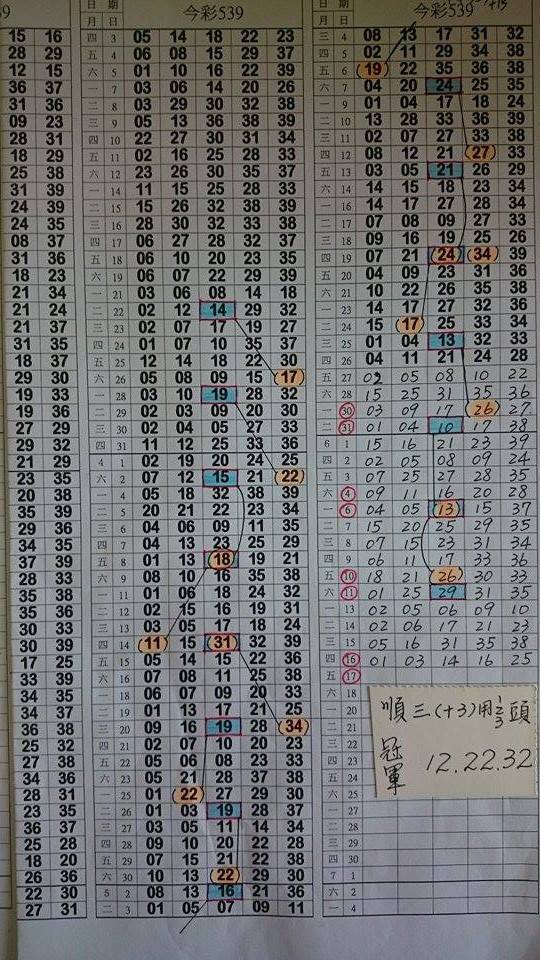 39
15 16
28 29
12 15
36 37
31 36
09 23
28 31
18 29
25 38
31 39
24 39
24 35
08 37
31 36
18 23
21 34
21 24
21 37
31 35
18 37
29 30
19 36
27 29
29 32
21 29
23 35
20 38
35 39
29 36
34 35
37 39
28 33
35 36
30 33
30 39
17 25
33 35
34 35
34 37
36 38
25 32
27 38
34 36
28 31
23 35
36 37
25 28
18 20
26 36
22 30
27 31
日 期 今彩539
四 3 05 14 18 22 23
五 4 06 08 15 29 37
六 5 01 10 16 22 39
一 7 03 06 14 20 26
二 8 03 29 30 32 38
三 9 05 13 36 38 39
四 10 22 27 30 31 34
五 11 02 16 25 28 33
六 12 23 26 30 35 37
一 14 11 15 25 28 33
二 15 15 26 32 38 39
三 16 28 30 32 33 38
四 17 06 27 28 32 37
五 18 06 10 20 23 35
六 19 06 07 22 29 39
一 21 03 06 08 14 18
二 22 02 12 14 29 32
三 23 02 07 17 19 27
四 24 01 07 10 35 37
五 25 12 14 18 22 30
六 26 05 08 09 15 17
一 28 03 10 19 28 32
二 29 02 03 09 20 30
三 30 02 04 05 27 33
四 31 11 12 25 33 36
4 1 02 19 20 24 25
六 2 07 12 15 21 22
一 4 05 18 32 38 39
二 5 20 21 22 23 34
三 6 04 06 09 11 35
四 7 04 13 23 25 29
五 8 01 13 18 19 21
六 9 08 10 16 35 38
一 11 01 06 18 24 32
二 12 02 15 16 19 31
三 13 03 05 17 18 24
四 14 11 15 31 32 39
五 15 05 14 15 22 36
六 16 07 08 11 25 38
一 18 06 07 09 20 33
二 19 01 13 17 21 25
三 20 09 16 19 28 34
四 21 02 07 10 20 23
五 22 05 06 08 23 33
六 23 05 21 28 37 38
一 25 01 22 27 29 30
二 26 01 03 19 28 37
三 27 03 05 11 14 34
四 28 09 10 20 22 28
五 29 07 15 21 22 38
六 30 10 13 22 29 30
5 2 08 13 16 21 36
二 3 01 05 07 09 11
日 期 今彩539
三 4 08 13 17 31 32
四 5 02 11 29 34 38
五 6 19 22 35 36 38
六 7 04 20 24 25 35
一 9 01 04 17 18 24
二 10 13 28 33 36 39
三 11 02 07 27 33 38
四 12 08 12 21 27 33
五 13 03 05 21 26 29
六 14 14 15 18 23 34
一 16 14 17 27 28 34
二 17 07 08 09 27 33
三 18 09 16 19 25 26
四 19 07 21 24 34 39
五 20 04 09 23 31 36
六 21 10 22 26 28 35
一 23 14 17 27 32 36
二 24 15 17 25 33 34
三 25 01 04 13 32 33
四 26 04 11 21 24 28
五 27 02 05 08 10 22
六 28 15 25 31 35 36
一 30 03 09 17 26 27
二 31 01 04 10 17 38
6 1 15 16 21 23 39
四 2 02 05 08 09 24
五 3 07 25 27 28 35
六 4 09 11 16 20 28
一 6 04 05 13 15 37
二 7 15 20 25 29 35
三 8 07 15 23 31 34
四 9 06 11 17 33 36
五 10 18 21 26 30 33
六 11 01 25 29 31 35
一 13 02 05 06 09 10
二 14 02 06 17 21 23
三 15 05 16 31 35 38
四 16 01 03 14 16 25
五 17
六 18
一 20
二 21
三 22
四 23
五 24
六 25
一 27
二 28
三 29
四 30
7 1
六 2
一 4
順三(+3)用1/3頭
冠軍 12.22.32